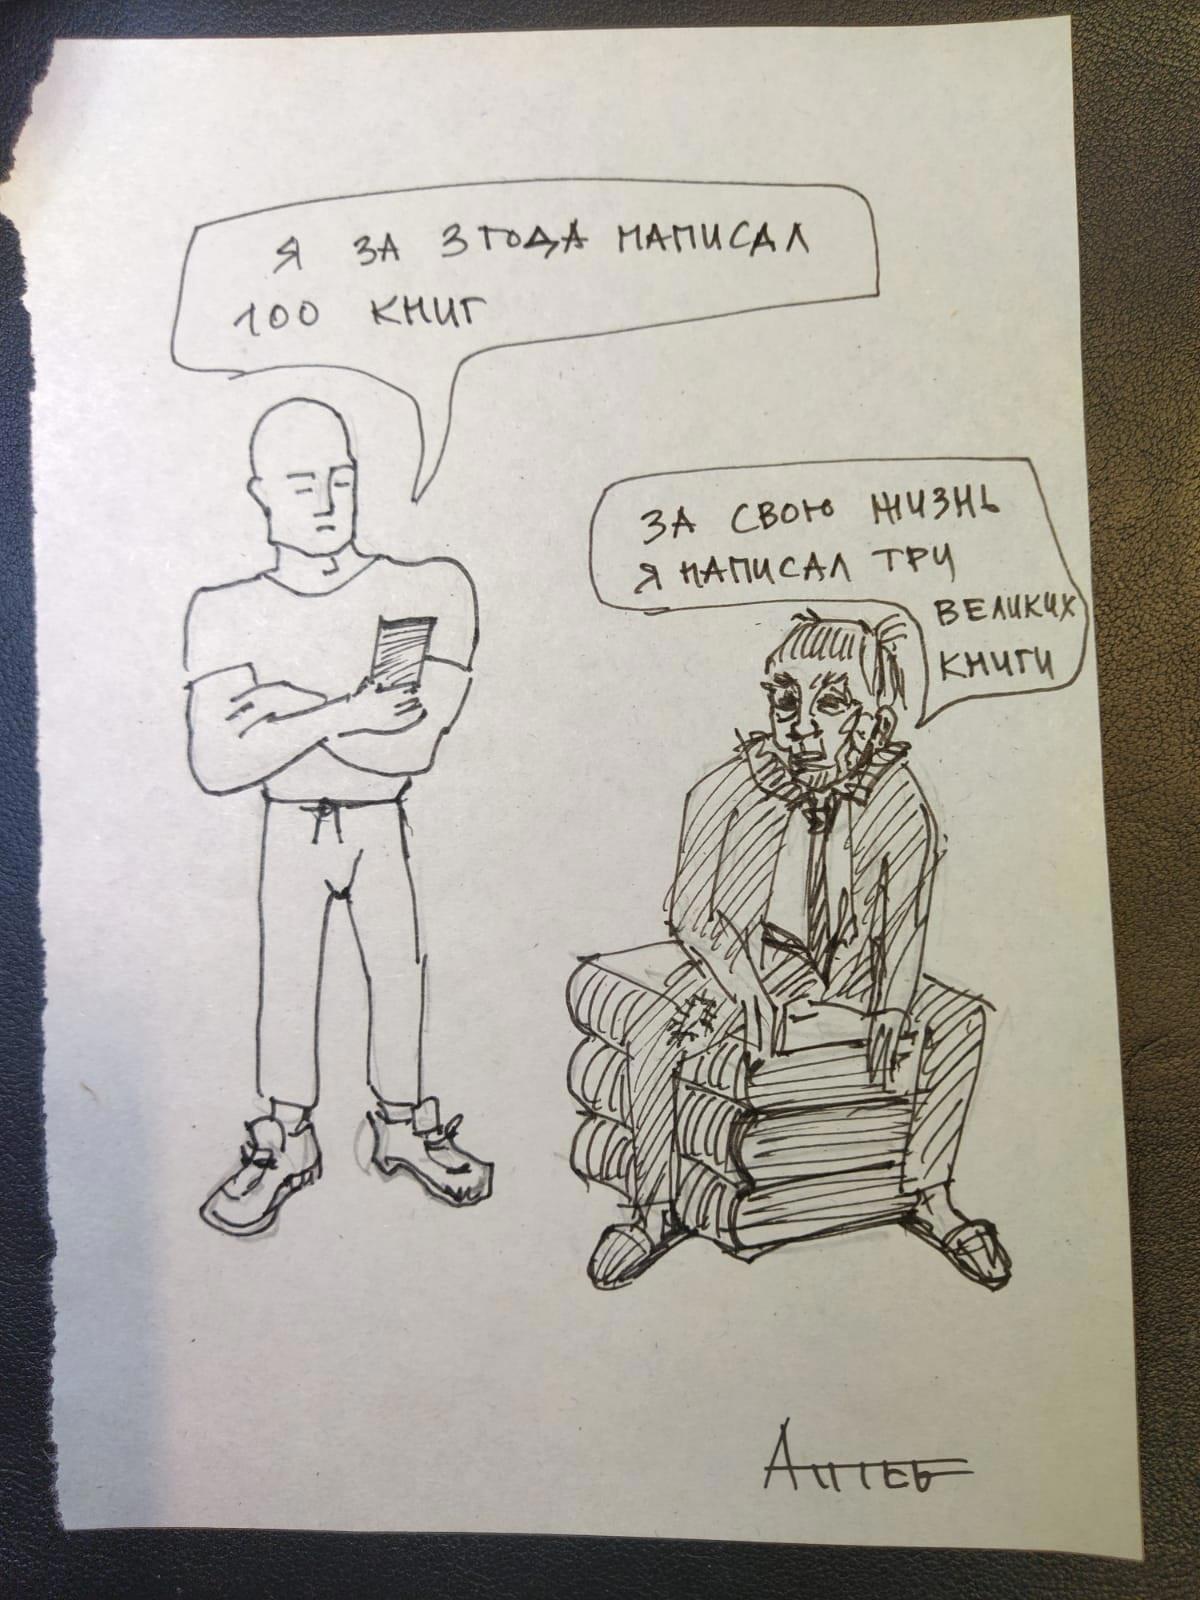 Я ЗА 3 ГОДА НАПИСАЛ
100 КНИГ
ЗА СВОЮ ЖИЗНЬ
Я НАПИСАЛ ТРИ
ВЕЛИКИХ
КНИГИ